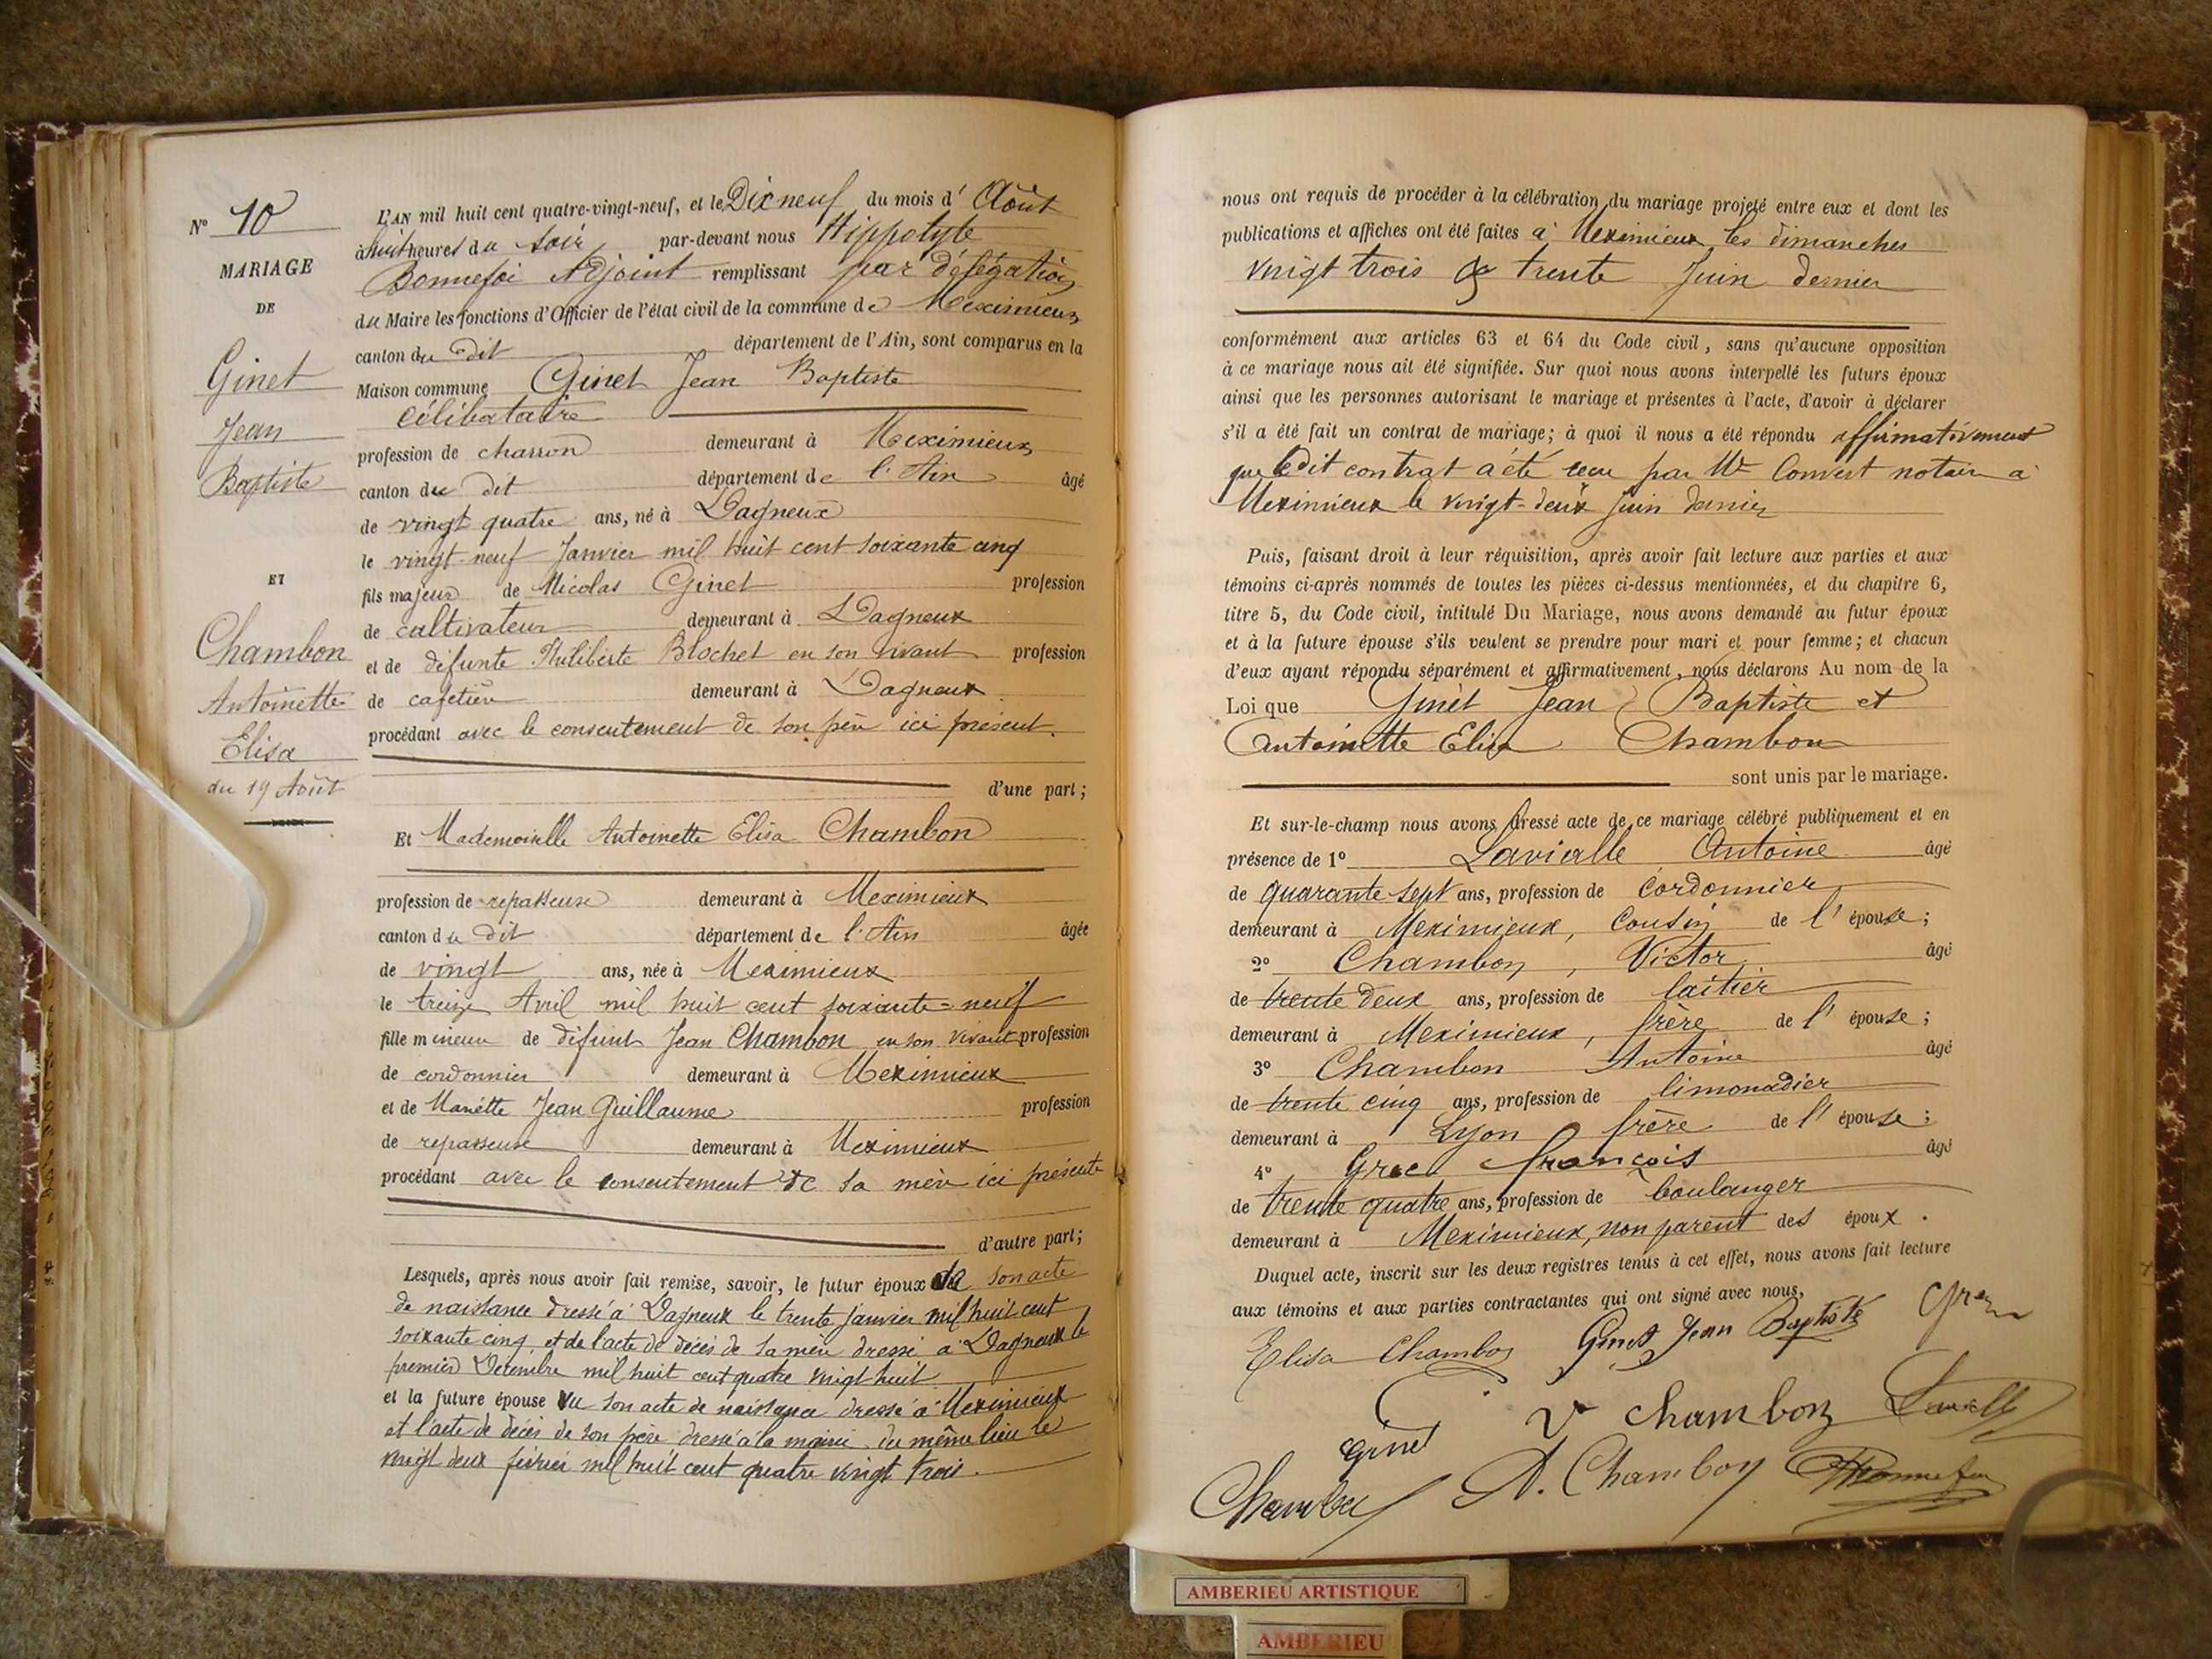 N° 10
MARIAGE
DE
Ginet
Jean
Baptiste
ET
Chambon
Antoinette
Elisa
du 19 Août
L'AN mil huit cent quatre-vingt-neuf, et le Dix neuf du mois d' Août
à huit heures du soir par-devant nous Hippolyte
Bonnefoi Adjoint remplissant par délégation
du Maire les fonctions d'Officier de l'état civil de la commune de Meximieux
canton du dit département de l'Ain, sont comparus en la
Maison commune Ginet Jean Baptiste
célibataire
profession de charron demeurant à Meximieux
canton du dit département de l'Ain âgé
de vingt quatre ans, né à Dagneux
le vingt-neuf Janvier mil huit cent soixante cinq
fils majeur de Nicolas Ginet profession
de cultivateur demeurant à Dagneux
et de défunte Philiberte Blochet en son vivant profession
de cafetière demeurant à Dagneux
procédant avec le consentement de son père ici présent.
d'une part;
Et Mademoiselle Antoinette Elisa Chambon
profession de repasseuse demeurant à Meximieux
canton du dit département de l'Ain âgée
de vingt ans, née à Meximieux
le treize Avril mil huit cent soixante-neuf
fille mineure de défunt Jean Chambon en son vivant profession
de cordonnier demeurant à Meximieux
et de Mariette Jean Guillaume profession
de repasseuse demeurant à Meximieux
procédant avec le consentement de sa mère ici présente
d'autre part;
Lesquels, après nous avoir fait remise, savoir, le futur époux de son acte
de naissance dressé à Dagneux le trente janvier mil huit cent
soixante cinq et de l'acte de décès de sa mère dressé à Dagneux le
premier Décembre mil huit cent quatre vingt huit
et la future épouse vu son acte de naissance dressé à Meximieux
et l'acte de décès de son père dressé à la mairie du même lieu le
vingt deux février mil huit cent quatre vingt trois.
nous ont requis de procéder à la célébration du mariage projeté entre eux et dont les
publications et affiches ont été faites à Meximieux les dimanches
vingt trois & trente Juin dernier
conformément aux articles 63 et 64 du Code civil, sans qu'aucune opposition
à ce mariage nous ait été signifiée. Sur quoi nous avons interpellé les futurs époux
ainsi que les personnes autorisant le mariage et présentes à l'acte, d'avoir à déclarer
s'il a été fait un contrat de mariage; à quoi il nous a été répondu affirmativement
que ledit contrat a été reçu par Me Convert notaire à
Meximieux le vingt-deux Juin dernier
Puis, faisant droit à leur réquisition, après avoir fait lecture aux parties et aux
témoins ci-après nommés de toutes les pièces ci-dessus mentionnées, et du chapitre 6,
titre 5, du Code civil, intitulé Du Mariage, nous avons demandé au futur époux
et à la future épouse s'ils veulent se prendre pour mari et pour femme; et chacun
d'eux ayant répondu séparément et affirmativement, nous déclarons Au nom de la
Loi que Ginet Jean Baptiste et
Antoinette Elisa Chambon
sont unis par le mariage.
Et sur-le-champ nous avons dressé acte de ce mariage célébré publiquement et en
présence de 1° Lavialle Antoine âgé
de quarante-sept ans, profession de cordonnier
demeurant à Meximieux, Cousin de l'épouse;
2° Chambon, Victor âgé
de trente deux ans, profession de laitier
demeurant à Meximieux, frère de l'épouse;
3° Chambon Antoine âgé
de trente cinq ans, profession de limonadier
demeurant à Lyon frère de l'épouse;
4° François âgé
de trente quatre ans, profession de boulanger
demeurant à Meximieux, non parent des époux.
Duquel acte, inscrit sur les deux registres tenus à cet effet, nous avons fait lecture
aux témoins et aux parties contractantes qui ont signé avec nous,
Elisa Chambon Ginet Jean Baptiste
Ginet V Chambon
A. Chambon
AMBERIEU ARTISTIQUE
AMBERIEU